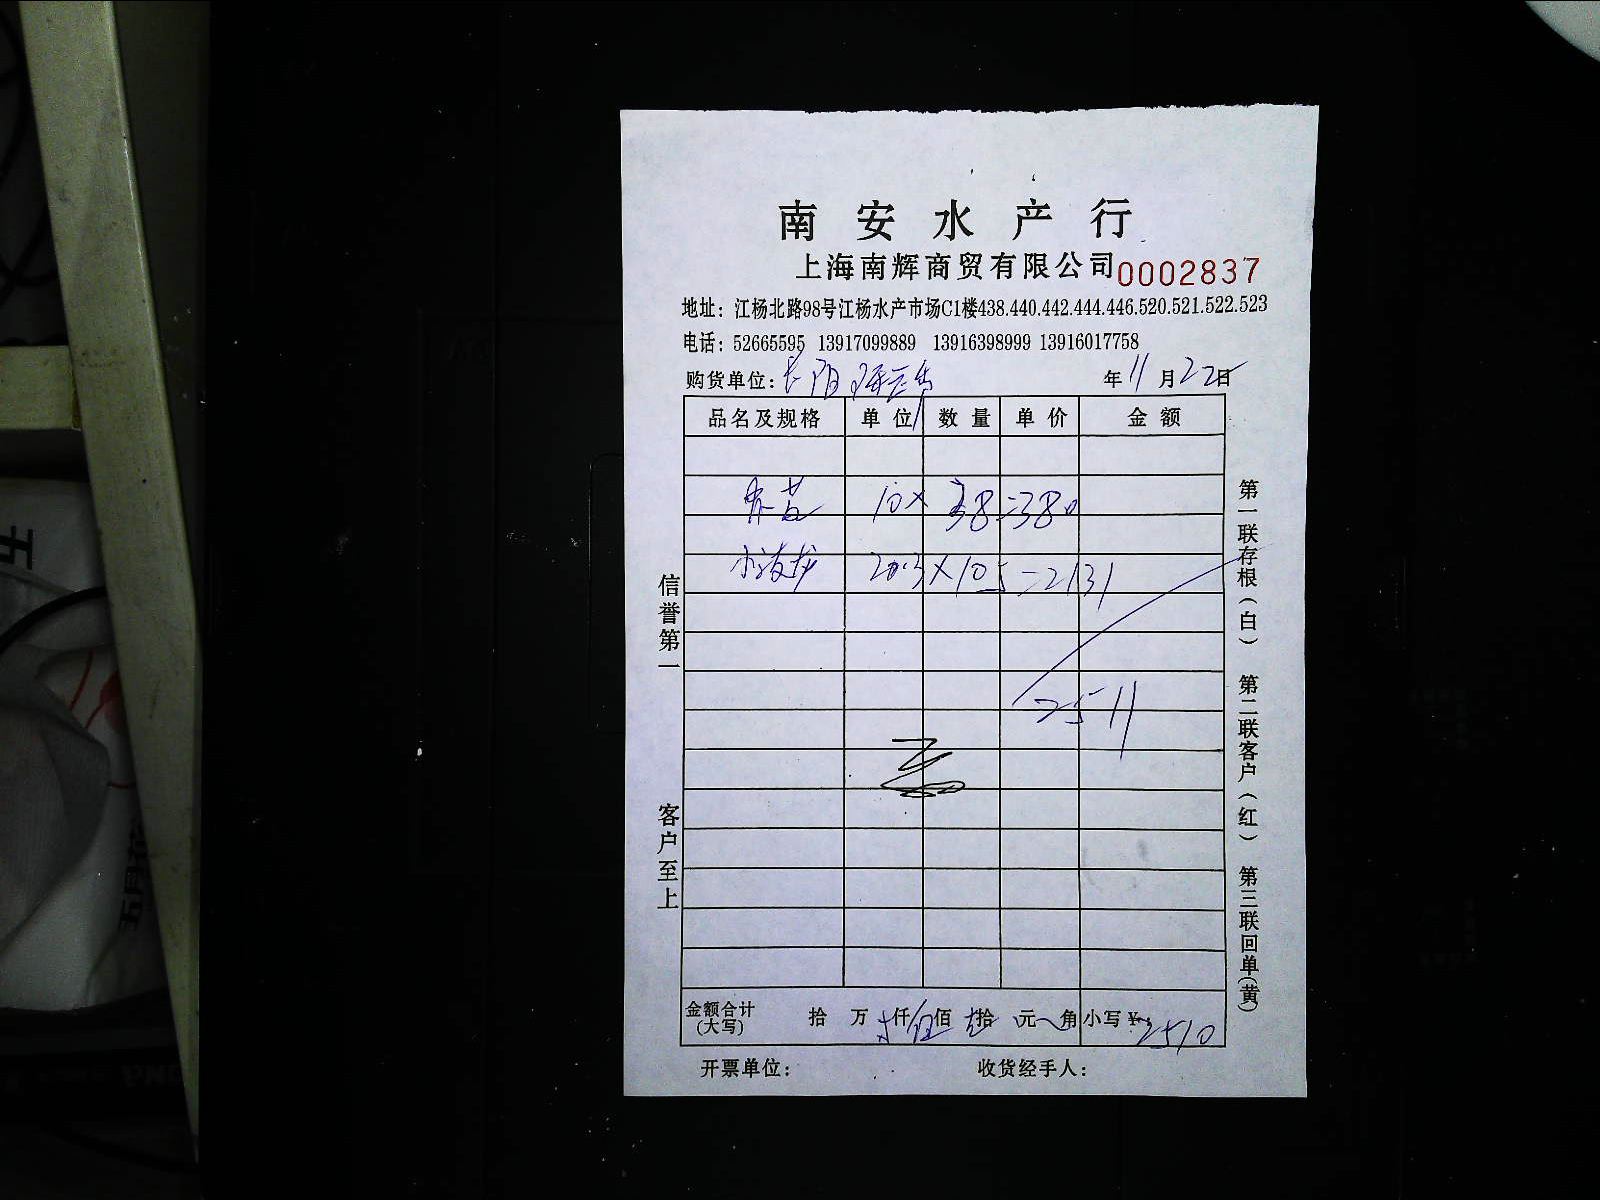 南安水产行
上海南辉商贸有限公司 0002837
地址：江杨北路98号江杨水产市场C1楼438.440.442.444.446.520.521.522.523
电话：52665595 13917099889 13916398999 13916017758
购货单位：长阳 年11月22日
品名及规格 单位 数量 单价 金额
10× 38=380
小波龙 20.3×105=2131
2511
金额合计(大写) 拾 万 仟伍佰 拾 元 角 小写¥：2510
开票单位： 收货经手人：
信誉第一 客户至上
第一联存根（白） 第二联客户（红） 第三联回单（黄）
五